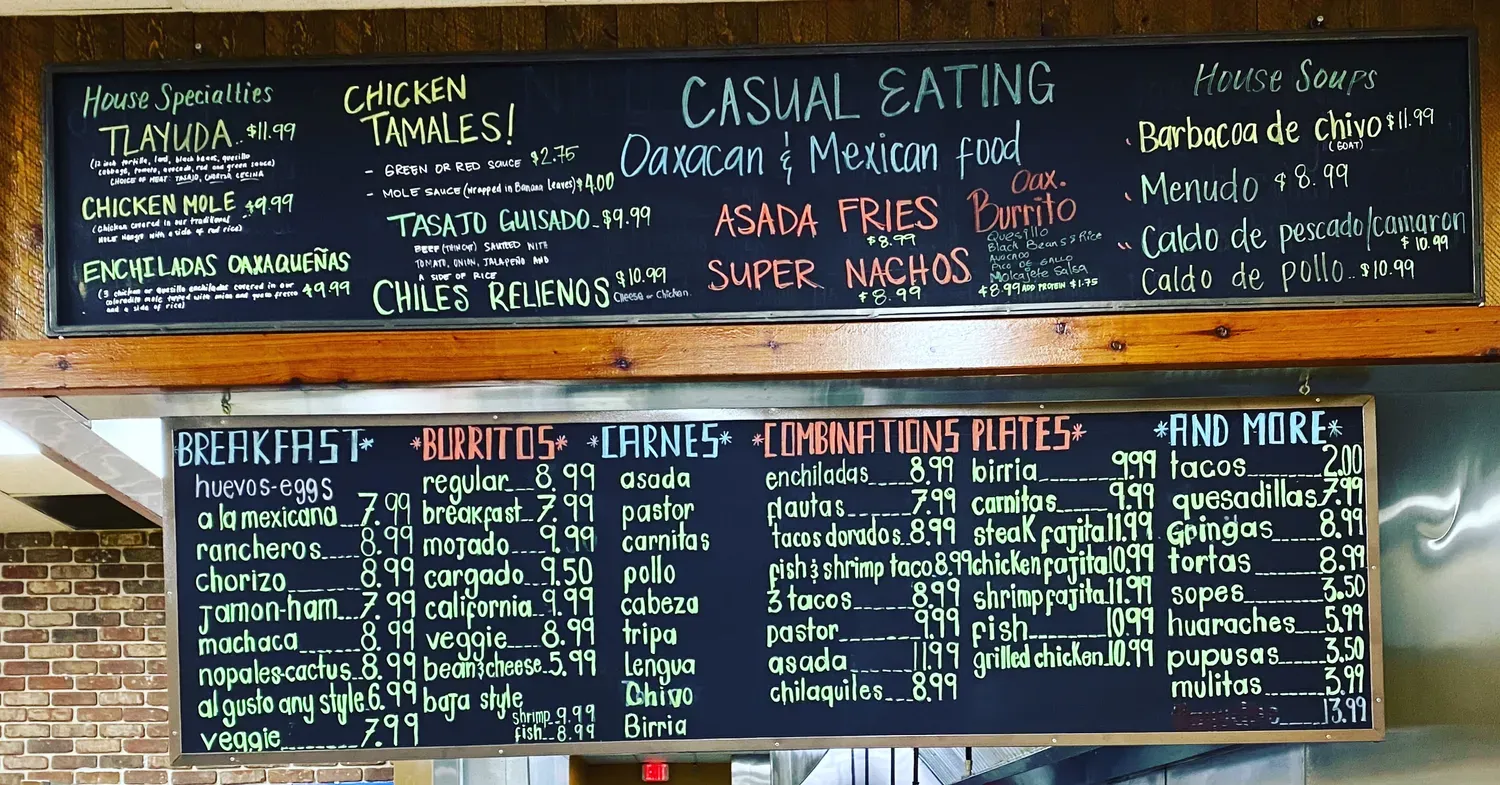 House Specialties
TLAYUDA.. $11.99
(12 inch tortilla, lard, black beans, quesillo
cabbage, tomato, avocado, red and green sauce)
CHOICE OF MEAT: TASAJO, CHORIZO, CECINA
CHICKEN MOLE $9.99
(Chicken covered in our traditional
MOLE Negro with a side of red rice)
ENCHILADAS OAXAQUEÑAS
(3 chicken or quesillo enchiladas covered in our
coloradito mole topped with onion and queso fresco
and a side of rice)
$9.99
CHICKEN
TAMALES!
- GREEN OR RED SAUCE $2.75
- MOLE SAUCE (Wrapped in Banana Leaves) $4.00
TASAJO GUISADO.. $9.99
BEEF (THIN CUT) SAUTEED WITH
TOMATO, ONION, JALAPEÑO AND
A SIDE OF RICE
CHILES RELIENOS $10.99
Cheese or Chicken.
CASUAL EATING
Oaxacan & Mexican food
ASADA FRIES
$8.99
SUPER NACHOS
$8.99
Oax.
Burrito
Quesillo
Black Beans & Rice
Avocado
PICO DE GALLO
Molcajete Salsa
$8.99 ADD PROTEIN $1.75
House Soups
Barbacoa de chivo $11.99
(GOAT)
Menudo $8.99
Caldo de pescado/camaron
$10.99
Caldo de pollo.. $10.99
BREAKFAST*
huevos-eggs
a la mexicana__7.99
rancheros____8.99
chorizo______8.99
Jamon-ham__7.99
machaca______8.99
nopales-cactus_8.99
al gusto any style 6.99
veggie_______7.99
*BURRITOS*
regular__8.99
breakfast__7.99
mojado___9.99
cargado__9.50
california_9.99
veggie___8.99
bean&cheese_5.99
baja style
shrimp_9.99
fish_8.99
*CARNES*
asada
pastor
carnitas
pollo
cabeza
tripa
Lengua
Chivo
Birria
*COMBINATIONS PLATES*
enchiladas____8.99
flautas_____7.99
tacos dorados_8.99
fish & shrimp taco 8.99
3 tacos_____8.99
pastor______9.99
asada_____11.99
chilaquiles__8.99
birria_______9.99
carnitas_____9.99
steak fajita 11.99
chicken fajita 10.99
shrimp fajita 11.99
fish_______10.99
grilled chicken_10.99
*AND MORE*
tacos_______2.00
quesadillas 7.99
Gringas____8.99
tortas______8.99
sopes_______3.50
huaraches___5.99
pupusas____3.50
mulitas_____3.99
_____13.99